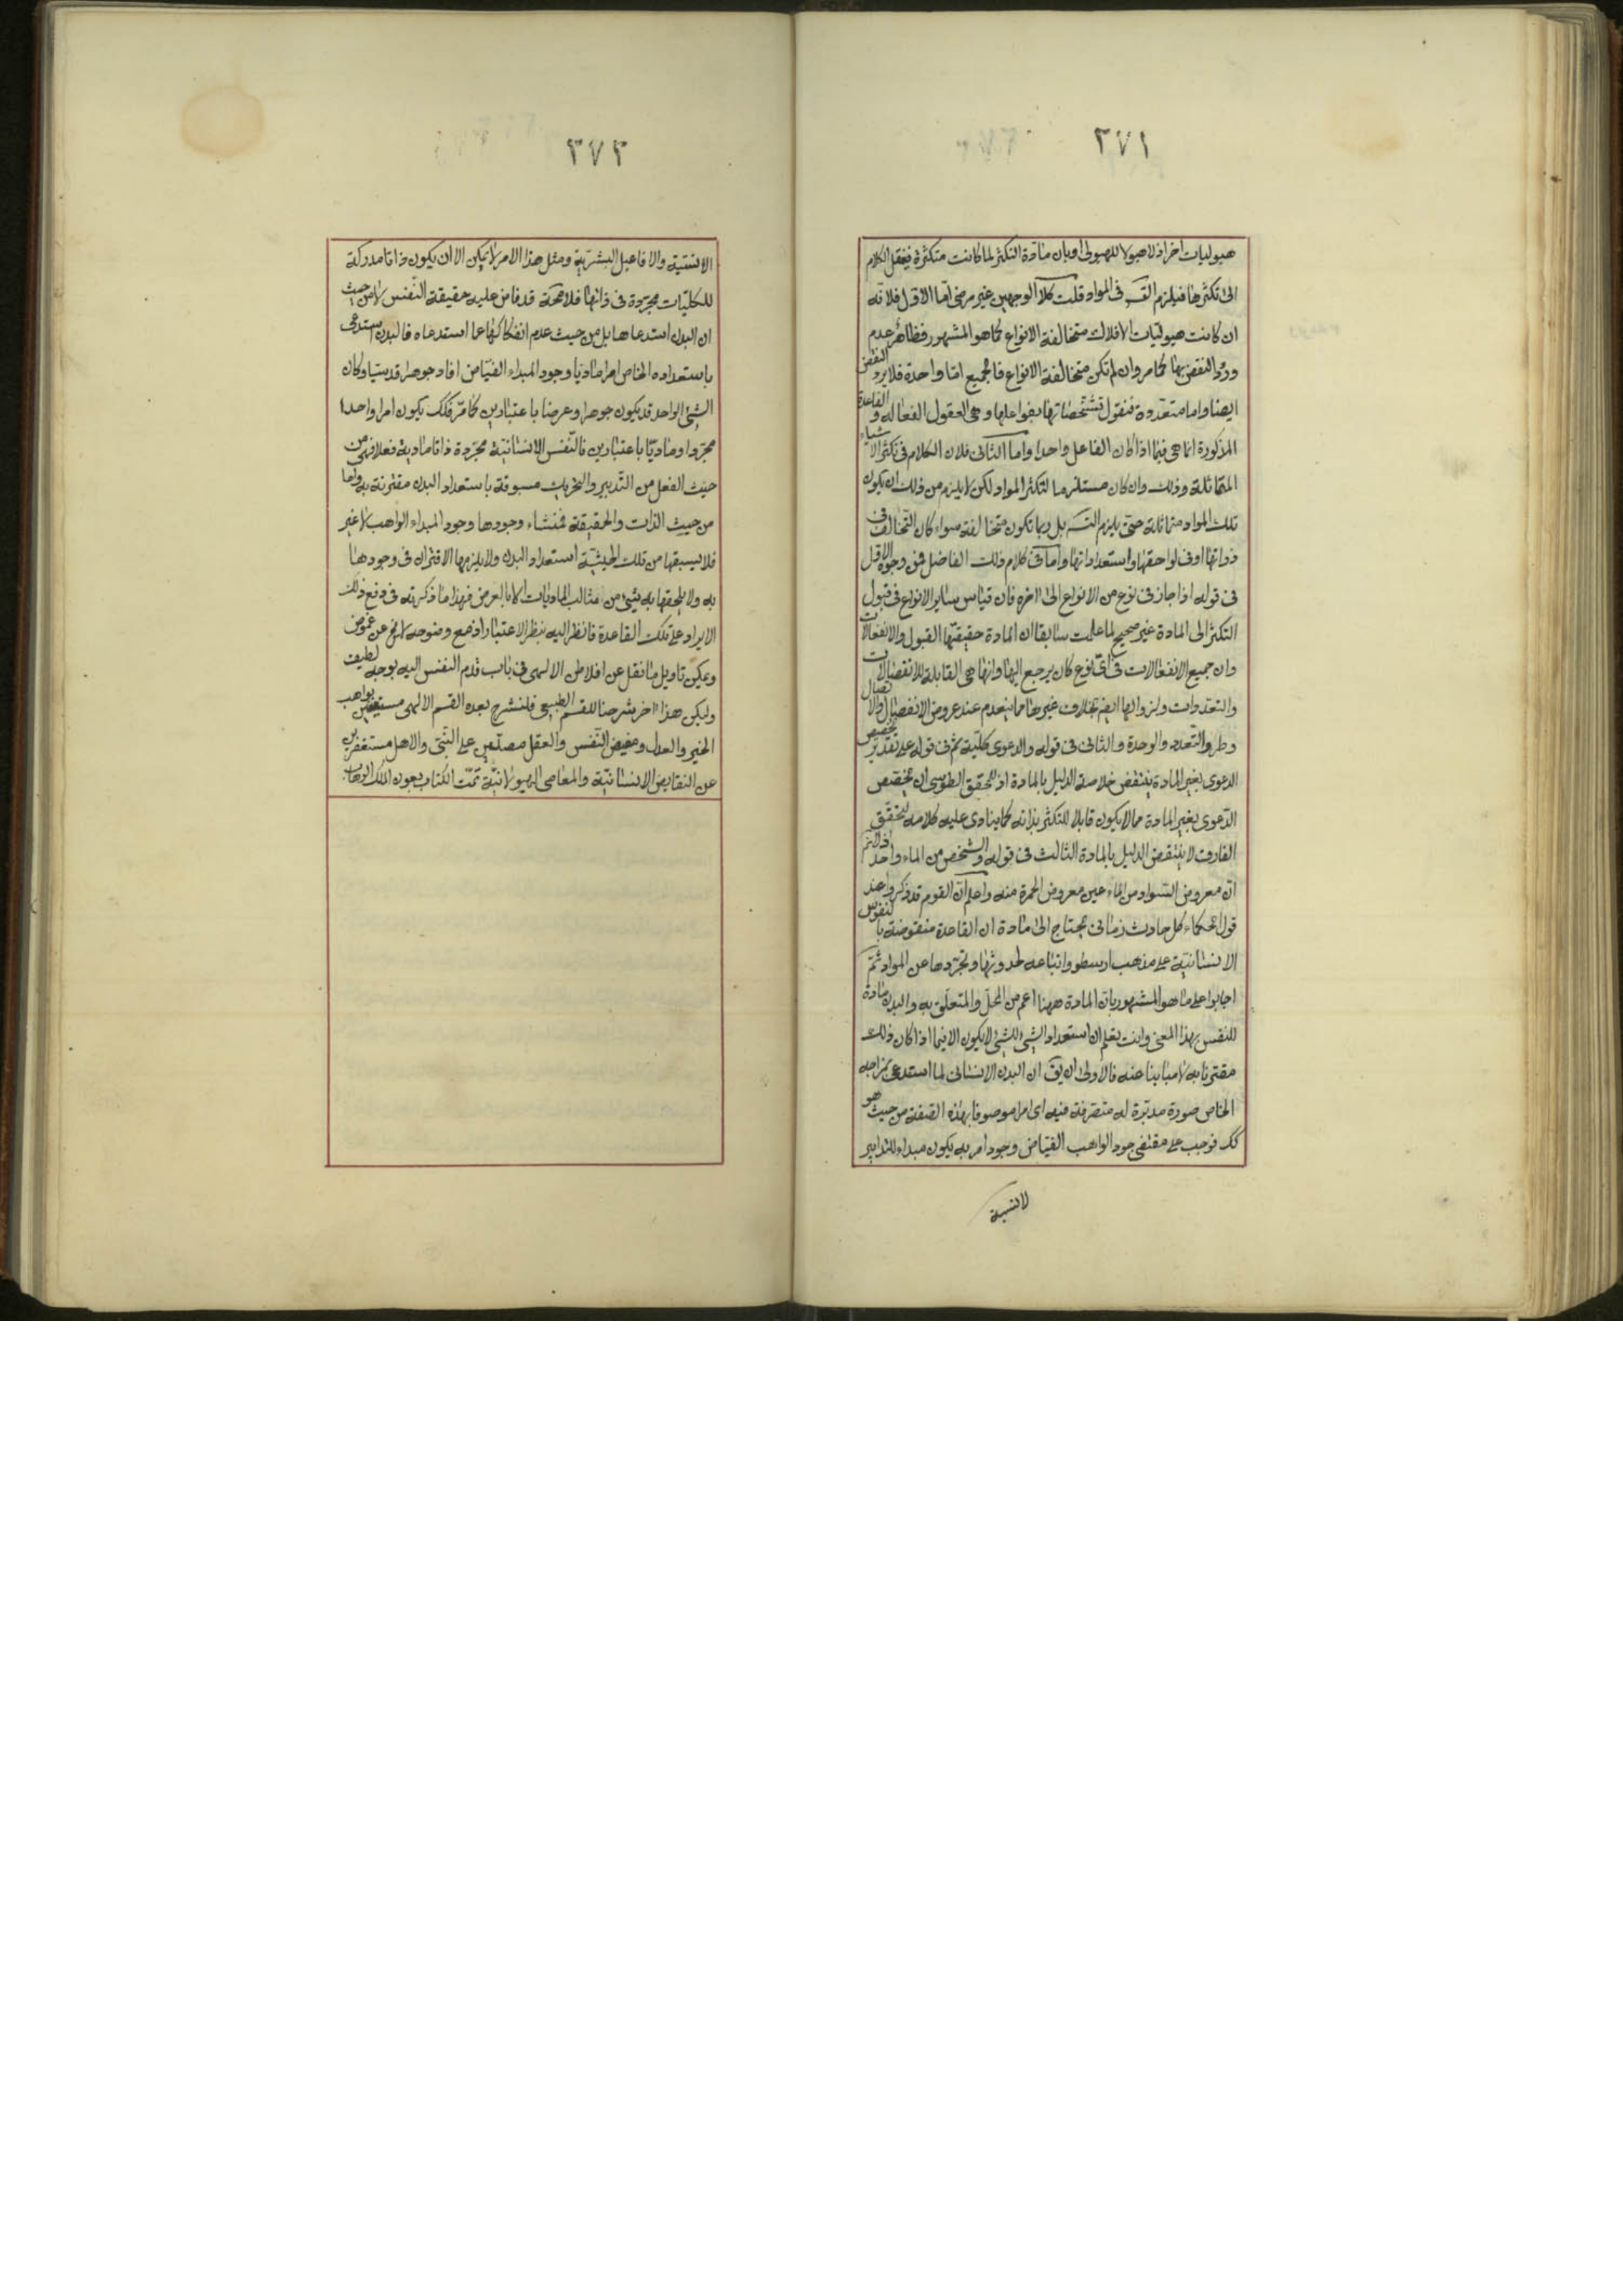 ٢٧١
هيوليات اخر اذ لا هيولا للهيولى او بان مادة التكثر لما كانت متكثرة فيفتقر الكلام
الى تكثرها فيلزم التسه فى المواد قلت كلا الوجهين غير مرضى اما الاول فلانه
ان كانت هيوليات الافلاك متخالفة الانواع كما هو المشهور فظاهر عدم
ورود النقض بها كما مر وان لم تكن متخالفة الانواع فالجميع اما واحدة فلا يرد النقض
ايضا واما متعددة فنقول تشخصاتها بفواعلها وهى العقول الفعاله والقاعدة
المذكورة انما هى فيما اذا كان الفاعل واحدا واما الثانى فلان الكلام فى تكثر الاشياء
المتماثلة وذلك وان كان مستلزما لتكثر المواد لكن لا يلزم من ذلك ان يكون
تلك المواد متماثلة حتى يلزم التسه بل ربما تكون متخالفة سواء كان التخالف فى
ذواتها او فى لواحقها واستعداداتها واما فى كلام ذلك الفاضل فمن وجوه الاول
فى قوله اذا جاز فى نوع من الانواع الى اخره فان قياس ساير الانواع فى قبول
التكثر الى المادة غير صحيح لما علمت سابقا ان المادة حقيقتها القبول والانفعالات
وان جميع الانفعالات فى اى نوع كان يرجع اليها وانها هى القابلة للانفصالات
والتعددات ولزوالها ايضا بخلاف غيرها مما ينعدم عند عروض الانفصال والاتصال
وطرو التعدد والوحدة والثانى فى قوله والدعوى كلية ثم فى قوله على تقدير تخصيص
الدعوى بغير المادة ينتقض خلاصة الدليل بالمادة اذ المحقق الطوسى ان يخصص
الدعوى بغير المادة مما لا يكون قابلا للتكثر بذاته كما ينادى عليه كلامه لتحقق
الفارق لا ينتقض الدليل بالمادة الثالث فى قوله والشخص من الماء واحد اذ لا نم
ان معروض السواد من الماء عين معروض الحمرة منه واعلم ان القوم قد ذكروا عند
قول الحكماء كل حادث زمانى يحتاج الى مادة ان القاعدة منقوضة بالنفوس
الانسانية على مذهب ارسطو واتباعه لحدوثها وتجردها عن المواد ثم
اجابوا على ما هو المشهور بان المادة ههنا اعم من المحل والمتعلق به والبدن مادة
للنفس بهذا المعنى وانت تعلم ان استعداد الشئ للشئ لا يكون الا فيما اذا كان ذلك
مقترنا به لا مباينا عنه فالاولى ان يق ان البدن الانسانى لما استدعى بمزاجه
الخاص صورة مدبرة له متصرفة فيه اى امرا موصوفا بهذه الصفة من حيث هو
كك فوجب على مقتضى جود الواهب الفياض وجود امر به يكون مبداء للتدابير
لانسية
٢٧٢
الانسية والافاعيل البشرية ومثل هذا الامر لا يمكن الا ان يكون ذاتا مدركة
للكليات مجردة فى ذاتها فلا محة قد فاض عليه حقيقة النفس لا من حيث
ان البدن استدعاها بل من حيث عدم انفكاكها عما استدعاه فالبدن استدعى
باستعداده الخاص امرا ماديا وجود المبداء الفياض افاد جوهرا قدسيا وكان
الشئ الواحد قد يكون جوهرا وعرضا باعتبارين كما مر فكك يكون امرا واحدا
مجردا وماديا باعتبارين فالنفس الانسانية مجردة ذاتا مادية فعلا فهى من
حيث الفعل من التدبير والتحريك مسبوقة باستعداد البدن مقترنة به واما
من حيث الذات والحقيقة فمنشاء وجودها وجود المبداء الواهب لا غير
فلا يسبقها من تلك الحيثية استعداد البدن ولا يلزمها الاقتران فى وجودها
به ولا يلحقها به شئ من مثالب الماديات الا بالعرض فهذا ما ذكرته فى دفع ذلك
الايراد على تلك القاعدة فانظر اليه بنظر الاعتبار اذ مع وضوحه لا يخ عن غموض
ويمكن تاويل ما نقل عن افلاطن الالهى فى باب قدم النفس اليه بوجه لطيف
وليكن هذا اخر شرحنا للقسم الطبيعى فلنشرح بعده القسم الالهى مستعينين بواهب
الخير والعدل ومفيض النفس والعقل مصلين على النبى والاهل مستغفرين
عن النقايص الانسانية والمعاصى الهيولانية تمت الكتاب بعون الملك الوهاب